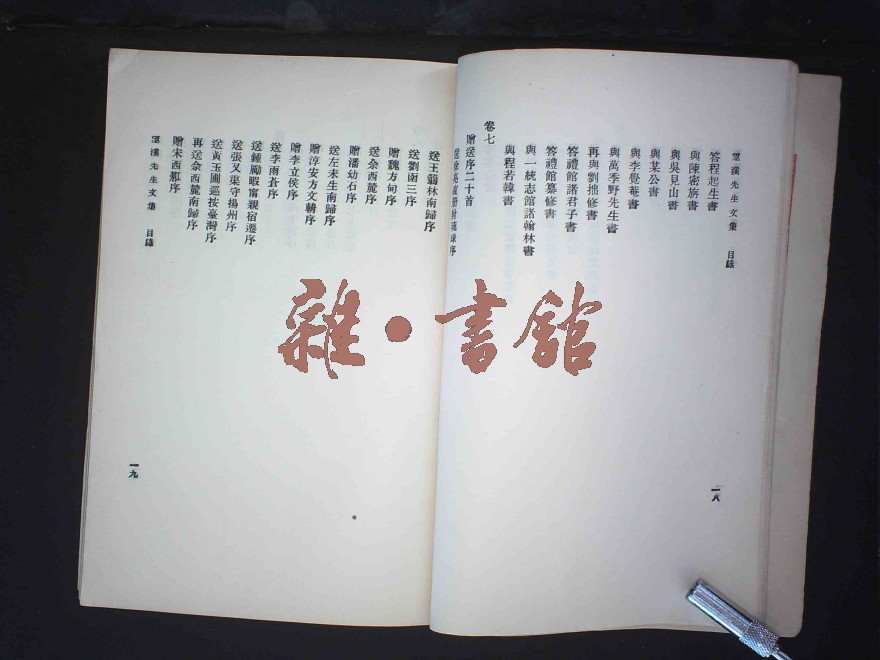 望溪先生文集 目錄
答程起生書
與陳密旃書
與吳見山書
與某公書
與李覺菴書
與萬季野先生書
再與劉拙修書
答禮館諸君子書
答禮館纂修書
與一統志館諸翰林書
與程若韓書
卷七
贈送序二十首
送徐亮直冊封琉球序
一八
送王篛林南歸序
送劉函三序
贈魏方甸序
送佘西麓序
贈潘幼石序
送左未生南歸序
贈淳安方文輈序
贈李立侯序
送李雨蒼序
送鍾勵暇甯親宿遷序
送張又渠守揚州序
送黃玉圃巡按臺灣序
再送佘西麓南歸序
贈宋西𨙻序
望溪先生文集 目錄
一九
雜·書館